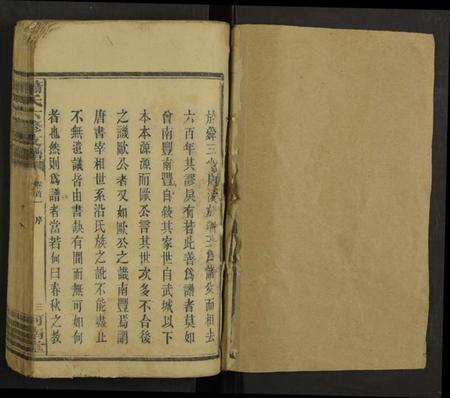 於舜三
為諸父而相去
六百年其謬戾有若此善爲譜者莫如
曾南豐南豐自敍其家世自武城以下
本本源源而歐公言其世次多不合後
之議歐公者又如歐公之議南豐焉謂
唐書宰相世系沿氏族之訛不能盡止
不無遺議皆由書缺有間而無可如何
者也然則爲譜者當若何曰春秋之教
氏六修支譜
卷首一
序
三
河南堂